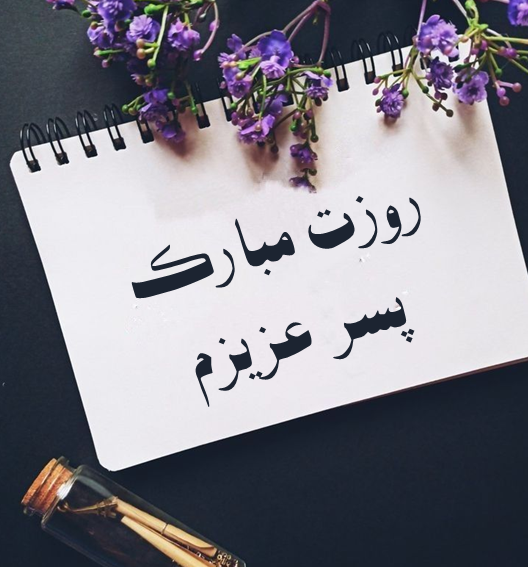 روزت مبارک
پسر عزیزم